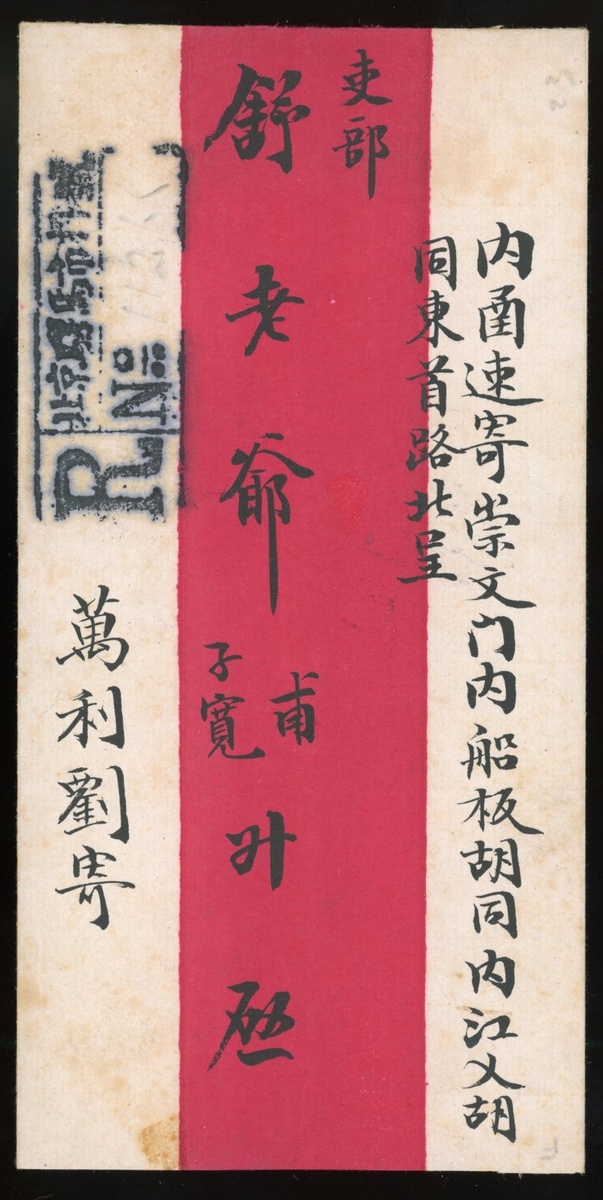 内函速寄崇文门内船板胡同内江乂胡
同東首路北呈
吏部
舒老爺
子寬
甫
升啟
萬利劉寄
R No
北京